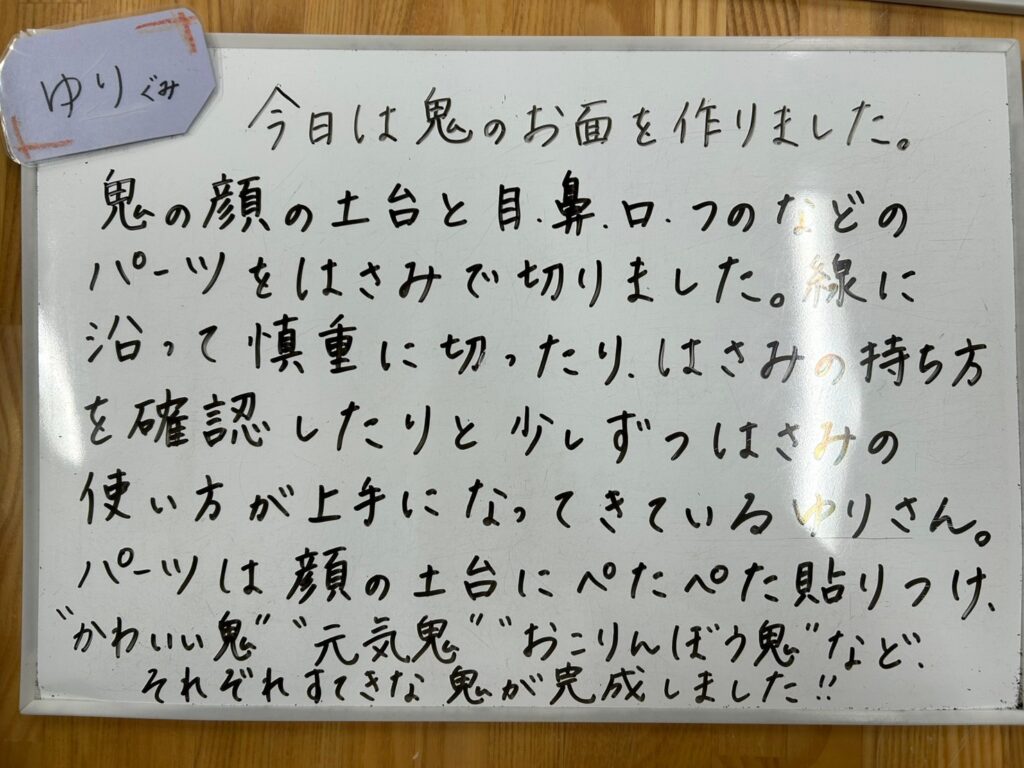 ゆりぐみ
今日は鬼のお面を作りました。
鬼の顔の土台と目、鼻、口、つのなどの
パーツをはさみで切りました。線に
沿って慎重に切ったり、はさみの持ち方
を確認したりと少しずつはさみの
使い方が上手になってきているゆりさん。
パーツは顔の土台にぺたぺた貼りつけ、
"かわいい鬼" "元気鬼" "おこりんぼう鬼"など、
それぞれすてきな鬼が完成しました!!